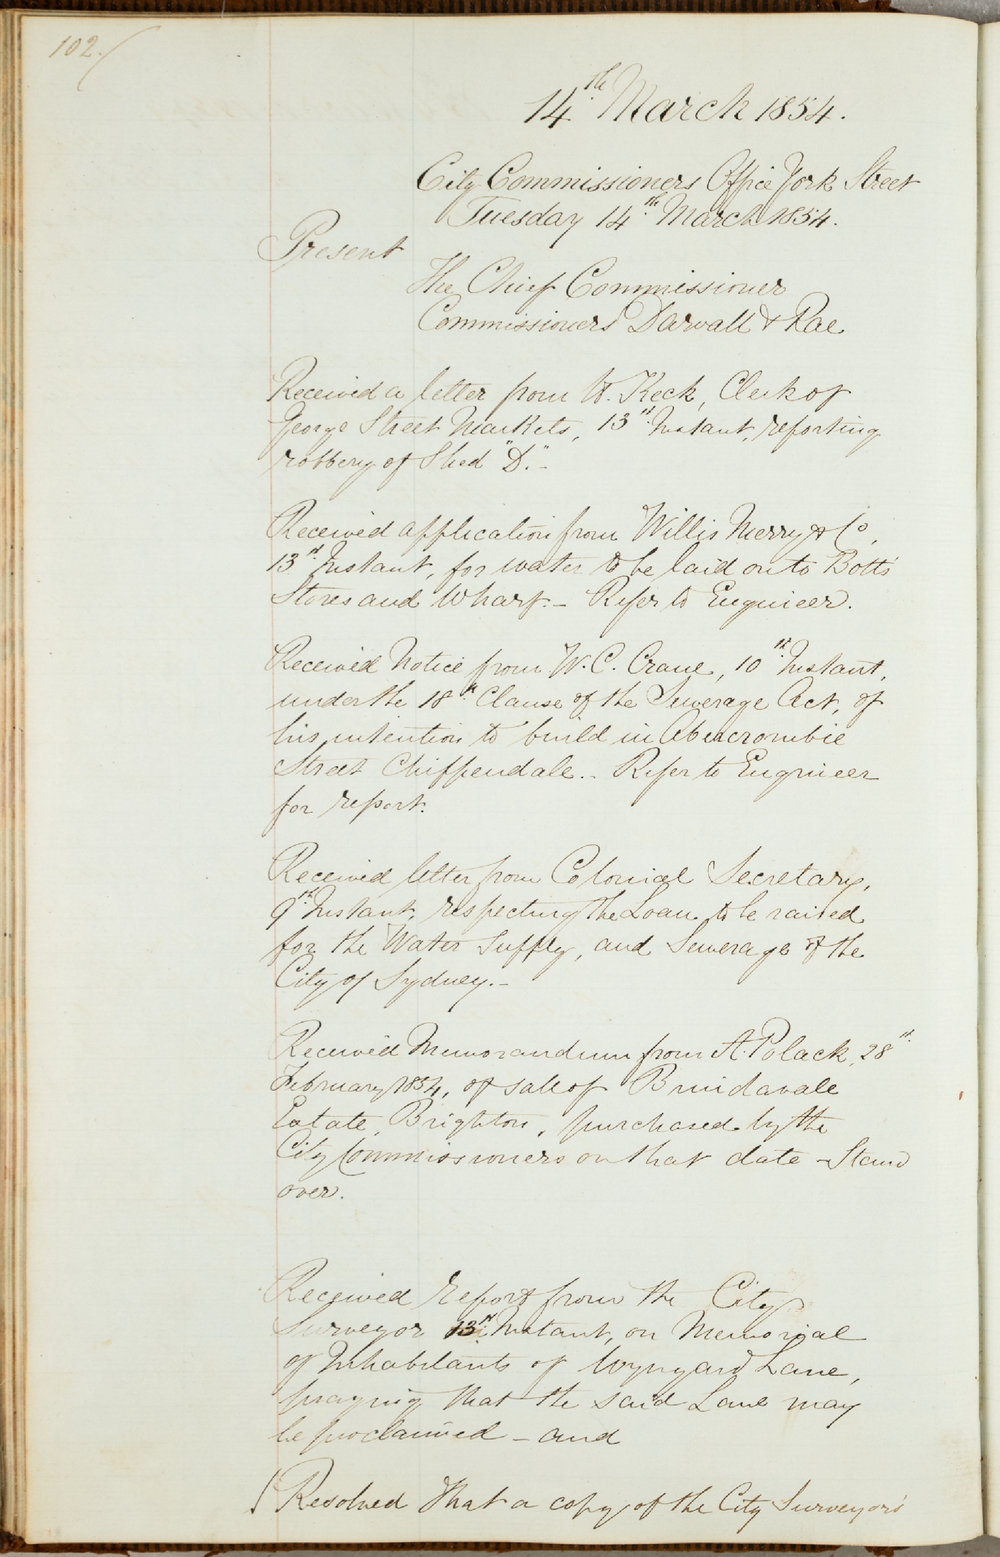 102.
14th March 1854.
City Commissioners Office York Street
Tuesday 14th March 1854.
Present
The Chief Commissioner
Commissioners Darvall & Rae
Received a letter from H. Keck, Clerk of
George Street Markets, 13th Instant, reporting
robbery of Shed "D."-
Received application from Willis Merry & Co,
13th Instant, for water to be laid on to Botts
Stores and Wharf. - Refer to Engineer.
Received Notice from W. C. Crane, 10th Instant,
under the 18th Clause of the Sewerage Act, of
his intention to build in Abercrombie
Street Chippendale. - Refer to Engineer
for report.
Received letter from Colonial Secretary,
9th Instant, respecting the Loan to be raised
for the Water Supply, and Sewerage of the
City of Sydney. -
Received Memorandum from A. Polack, 28th
February 1854, of sale of
Estate, Brighton, purchased by the
City Commissioners on that date - Stand
over.
Received report from the City
Surveyor 13th Instant, on Memorial
of Inhabitants of Wynyard Lane,
praying that the said Lane may
be proclaimed - and
Resolved that a copy of the City Surveyors